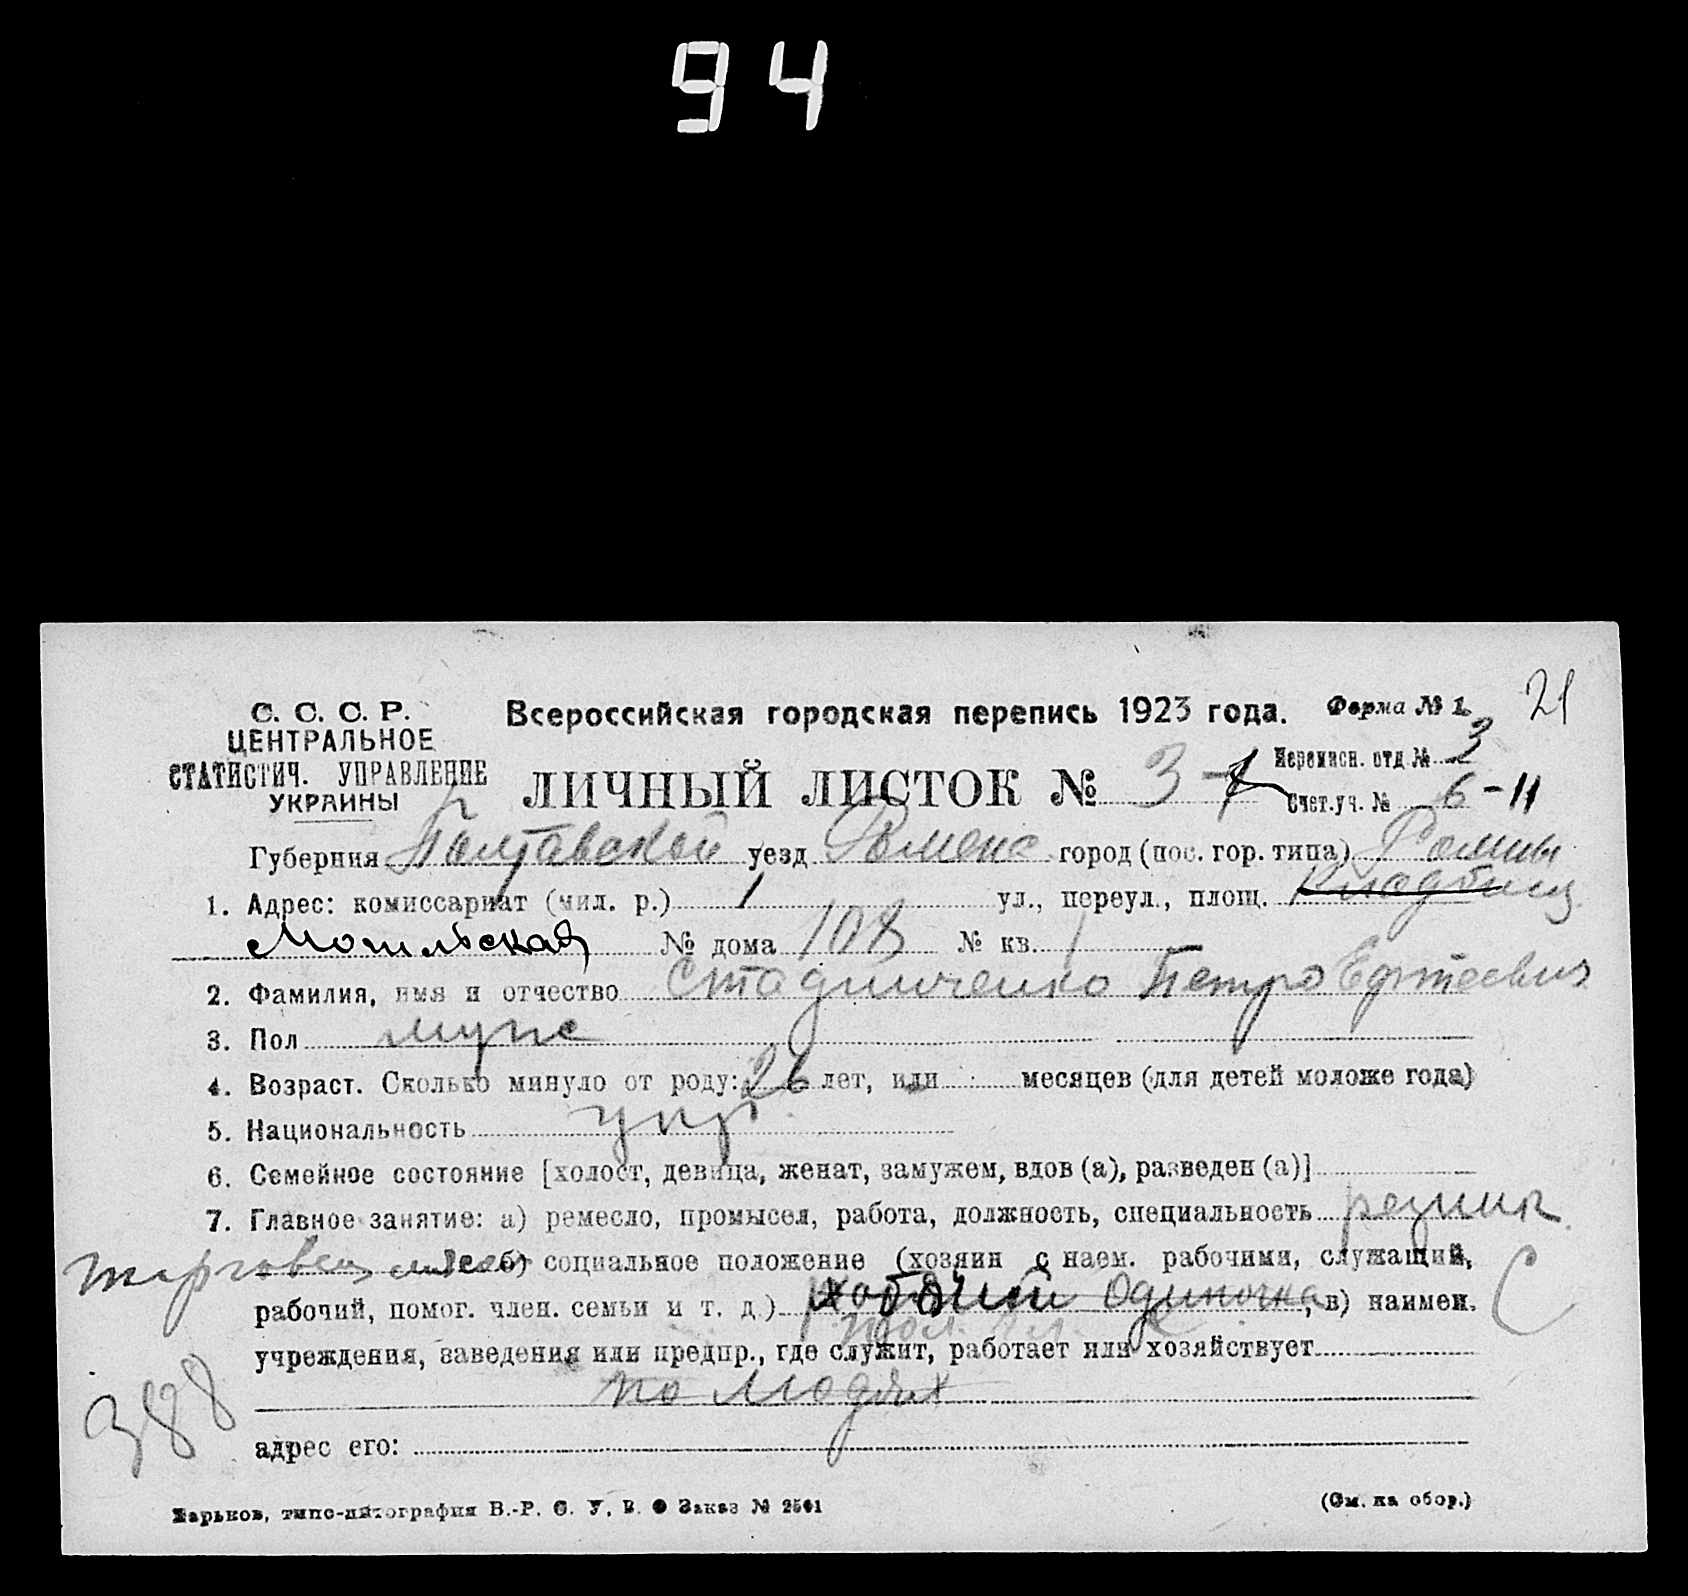 94
С. С. С. Р.
ЦЕНТРАЛЬНОЕ
СТАТИСТИЧ. УПРАВЛЕНИЕ
УКРАИНЫ
Всероссийская городская перепись 1923 года.
Форма № 1.
21
ЛИЧНЫЙ ЛИСТОК № 3-
Переписн. отд. № 3
Счет. уч. № 6-11
Губерния Полтавской уезд Роменс город (пос. гор. типа) Ромны
1. Адрес: комиссариат (мил. р.) 1 ул., переул., площ. Кладбищ
Могильская № дома 108 № кв. 1
2. Фамилия, имя и отчество Стадниченко Петро
3. Пол муж
4. Возраст. Сколько минуло от роду: 26 лет, или месяцев (для детей моложе года)
5. Национальность укр
6. Семейное состояние [холост, девица, женат, замужем, вдов (а), разведен (а)]
7. Главное занятие: а) ремесло, промысел, работа, должность, специальность резник
торговец б) социальное положение (хозяин с наем. рабочими, служащий,
рабочий, помог. член. семьи и т. д.) одиночка, в) наимен.
С
учреждения, заведения или предпр., где служит, работает или хозяйствует
по людях
388
адрес его:
Харьков, типо-литография В.-Р. С. У. В. О Заказ № 2501
(См. на обор.)